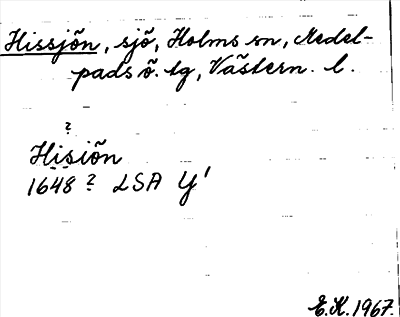 Hissjön, sjö, Holms sn, Medel-
pads ö. tg, Västern. l.
?
Hisiön
1648 ? LSA Y'
E.K. 1967.